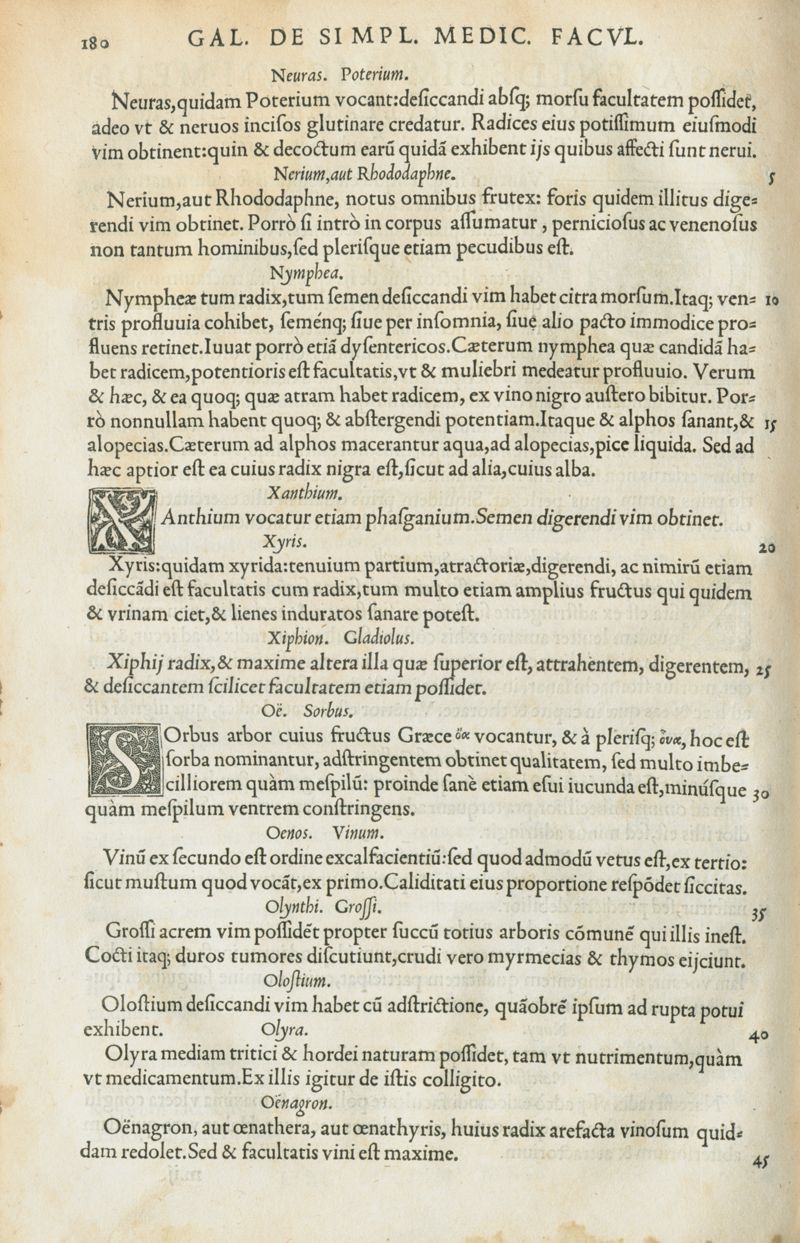 180 GAL. DE SIMPL. MEDIC. FACVL.
Neuras. Poterium.
Neuras,quidam Poterium vocant:deſiccandi abſq; morſu facultatem poſſidet,
adeo vt & neruos inciſos glutinare credatur. Radices eius potiſſimum eiuſmodi
vim obtinent:quin & decoctum earũ quidã exhibent ijs quibus affecti ſunt nerui.
Nerium,aut Rhododaphne. 5
Nerium,aut Rhododaphne, notus omnibus frutex: foris quidem illitus dige⸗
rendi vim obtinet. Porrò ſi intrò in corpus aſſumatur, pernicioſus ac venenoſus
non tantum hominibus,ſed pleriſque etiam pecudibus eſt.
Nymphea.
Nympheæ tum radix,tum ſemen deſiccandi vim habet citra morſum.Itaq; ven⸗ 10
tris profluuia cohibet, ſeménq; ſiue per inſomnia, ſiue alio pacto immodice pro⸗
fluens retinet.Iuuat porrò etiã dyſentericos.Cæterum nymphea quæ candidã ha⸗
bet radicem,potentioris eſt facultatis,vt & muliebri medeatur profluuio. Verum
& hæc, & ea quoq; quæ atram habet radicem, ex vino nigro auſtero bibitur. Por⸗
rò nonnullam habent quoq; & abſtergendi potentiam.Itaque & alphos ſanant,& 15
alopecias.Cæterum ad alphos macerantur aqua,ad alopecias,pice liquida. Sed ad
hæc aptior eſt ea cuius radix nigra eſt,ſicut ad alia,cuius alba.
Xanthium.
XAnthium vocatur etiam phaſganium.Semen digerendi vim obtinet.
Xyris. 20
Xyris:quidam xyrida:tenuium partium,atractoriæ,digerendi, ac nimirũ etiam
deſiccãdi eſt facultatis cum radix,tum multo etiam amplius fructus qui quidem
& vrinam ciet,& lienes induratos ſanare poteſt.
Xiphion. Gladiolus.
Xiphij radix,& maxime altera illa quæ ſuperior eſt, attrahentem, digerentem, 25
& deſiccantem ſcilicet facultatem etiam poſſidet.
Oë. Sorbus.
SOrbus arbor cuius fructus Græce ὄα vocantur, & à pleriſq; ὄυα, hoc eſt
ſorba nominantur, adſtringentem obtinet qualitatem, ſed multo imbe⸗
cilliorem quàm meſpilũ: proinde ſanè etiam eſui iucunda eſt,minúſque 30
quàm meſpilum ventrem conſtringens.
Oenos. Vinum.
Vinũ ex ſecundo eſt ordine excalfacientiũ:ſed quod admodũ vetus eſt,ex tertio:
ſicut muſtum quod vocãt,ex primo.Caliditati eius proportione reſpõdet ſiccitas.
Olynthi. Groſſi. 35
Groſſi acrem vim poſſidẽt propter ſuccũ totius arboris cõmunẽ qui illis ineſt.
Cocti itaq; duros tumores diſcutiunt,crudi vero myrmecias & thymos eijciunt.
Oloſtium.
Oloſtium deſiccandi vim habet cũ adſtrictione, quãobrẽ ipſum ad rupta potui
exhibent. Olyra. 40
Olyra mediam tritici & hordei naturam poſſidet, tam vt nutrimentum,quàm
vt medicamentum.Ex illis igitur de iſtis colligito.
Oënagron.
Oënagron, aut œnathera, aut œnathyris, huius radix arefacta vinoſum quid⸗
dam redolet.Sed & facultatis vini eſt maxime. 45